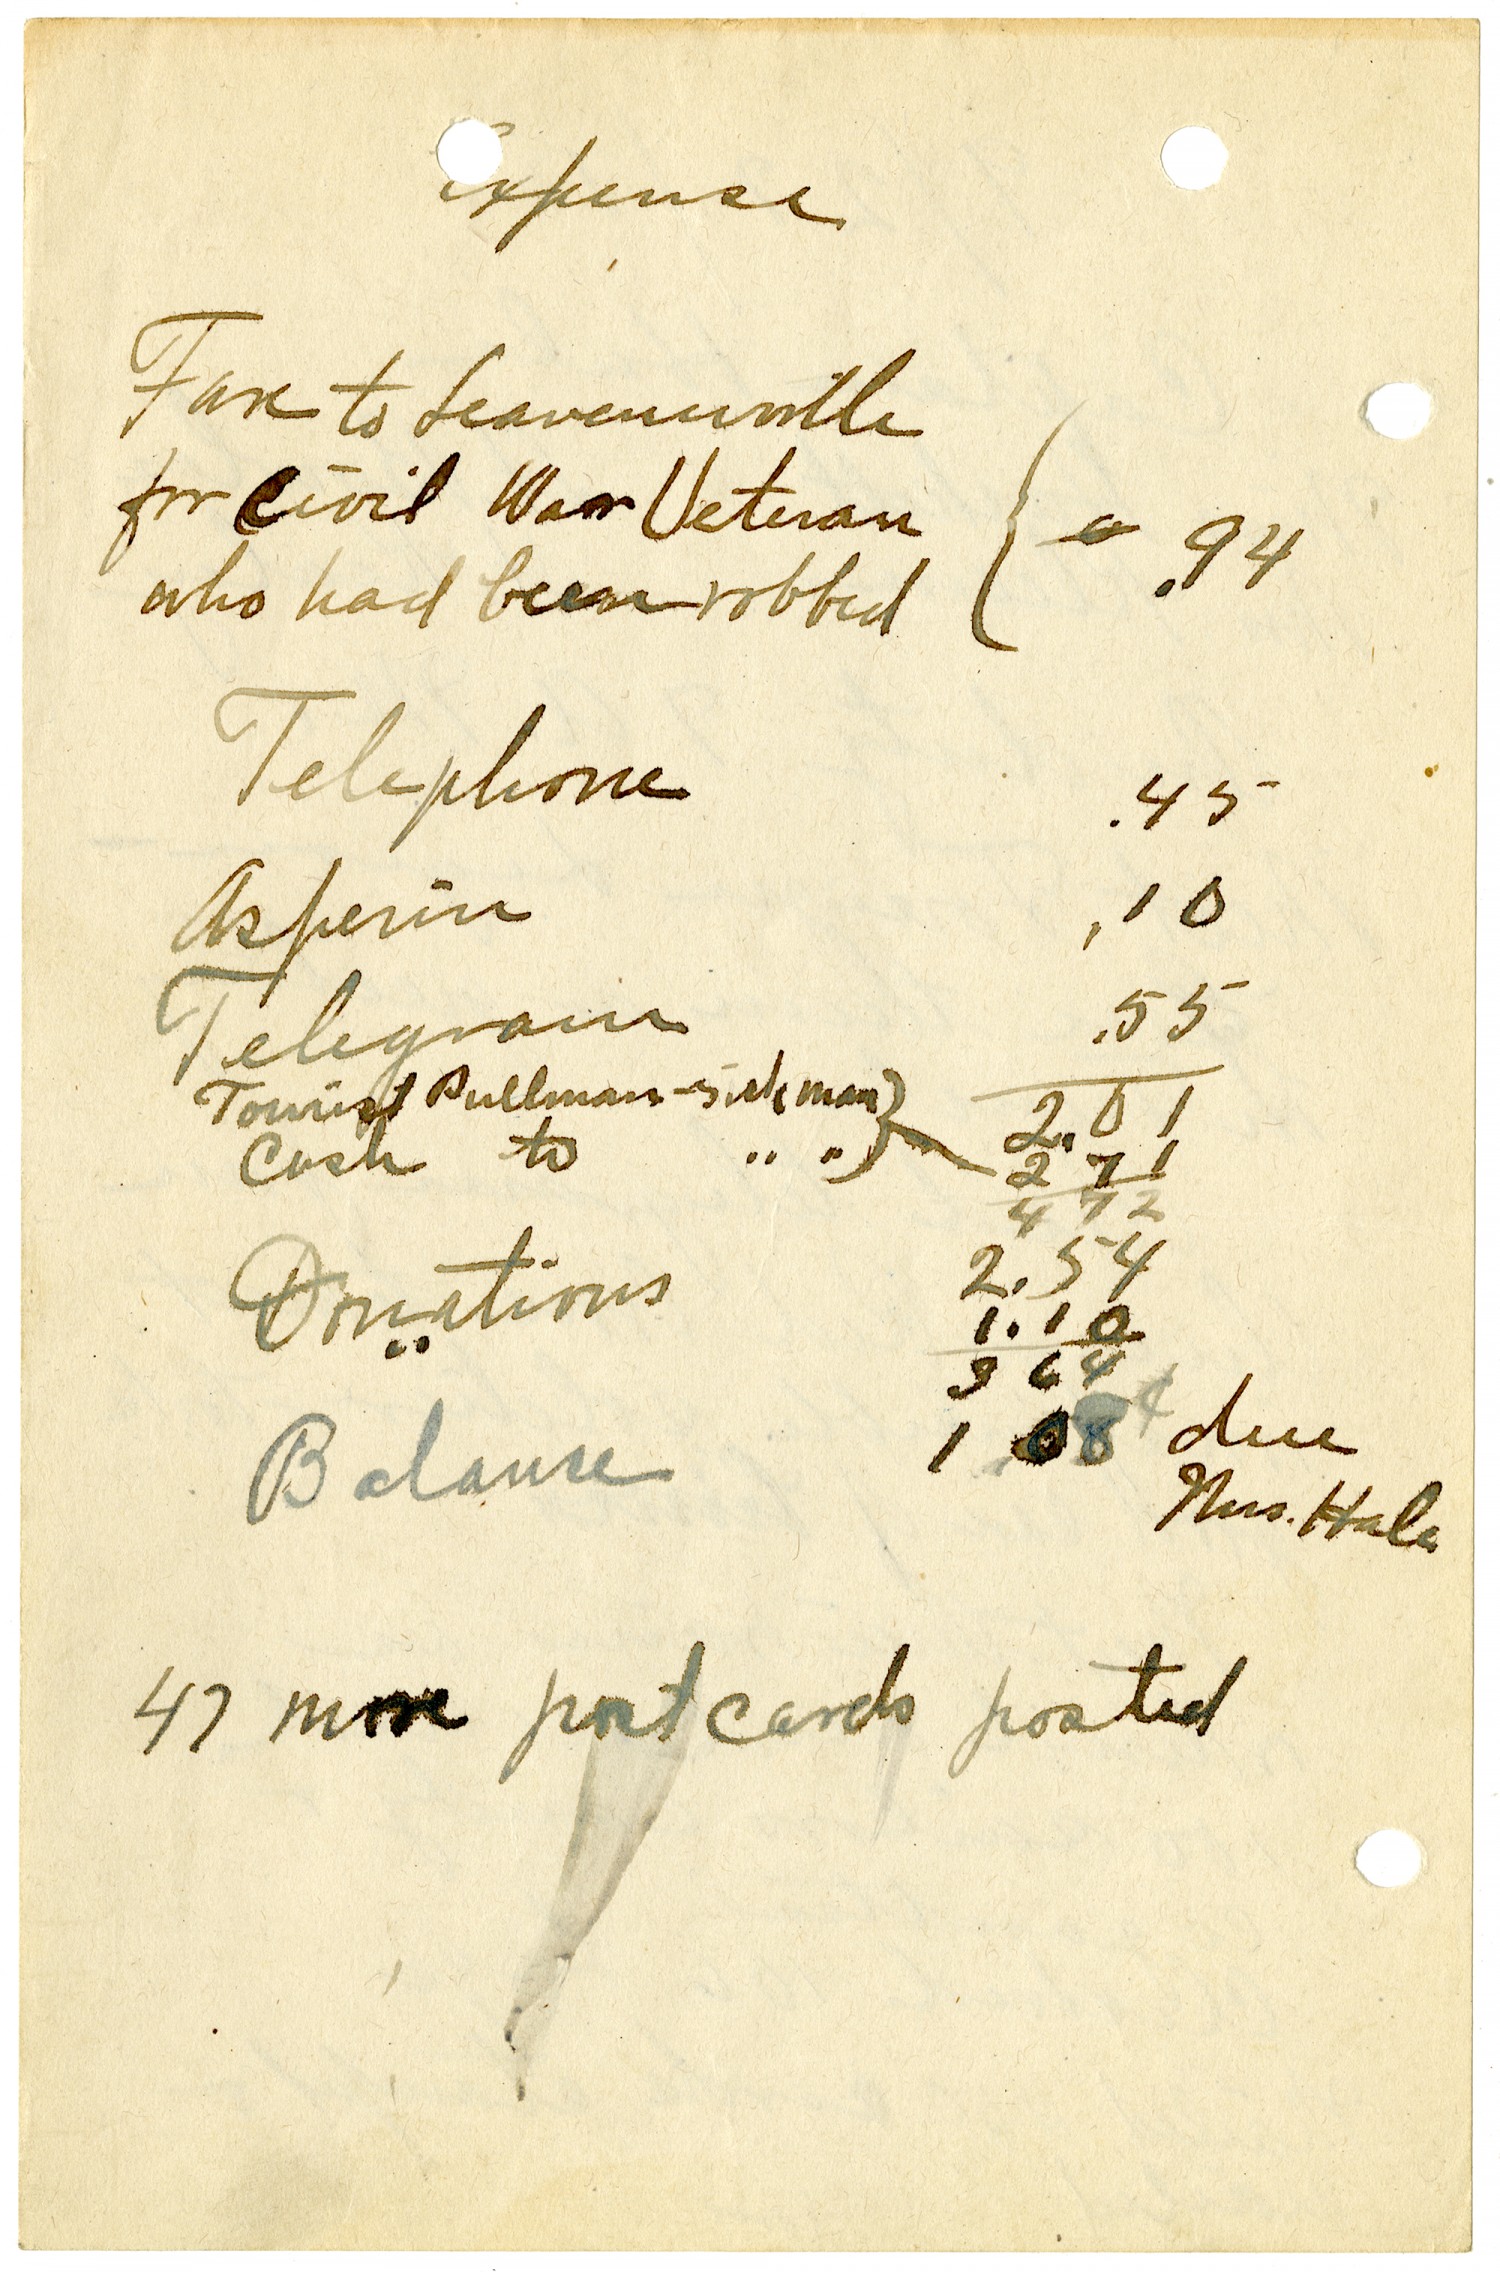 Expense
Fare to Leavenworth
for Civil War Veteran
who had been robbed } .94
Telephone .45
Asperin .10
Telegram .55
2.01
Tourist Pullman - sick man
Cash to " " } 2 71
4 72
Donations 2.54
" 1.10
3 64
Balance 1.08 due
Mrs. Hale
47 more post cards posted